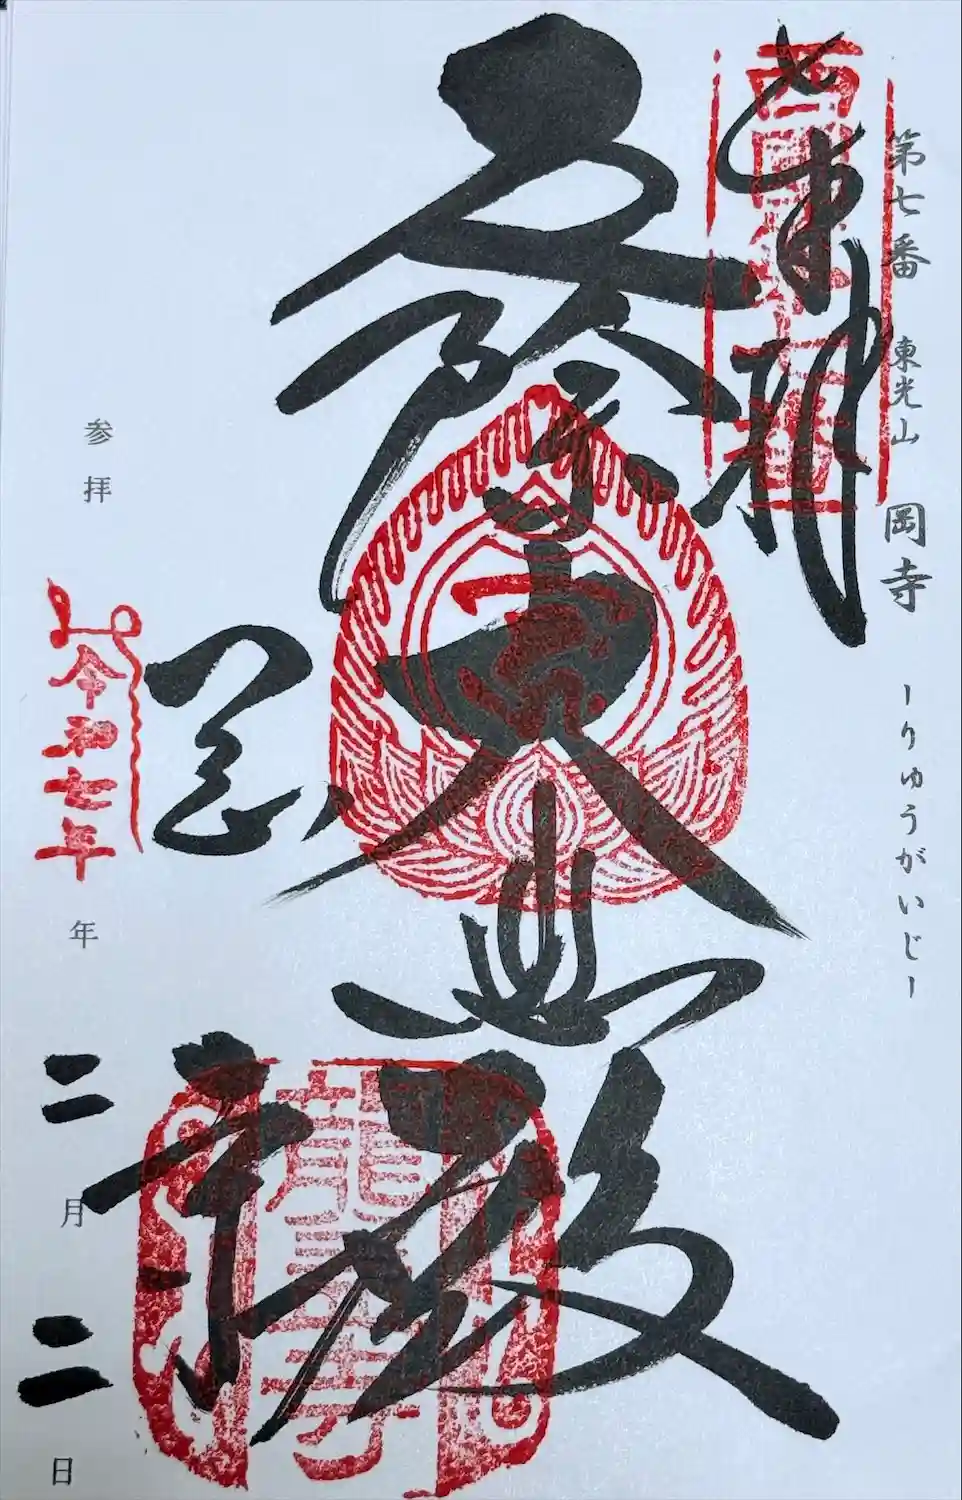 第七番 東光山 岡寺 ーりゅうがいじー
奉拝
西国第七番
大悲殿
岡寺
龍蓋寺
参拝
令和七年
年
二月二日